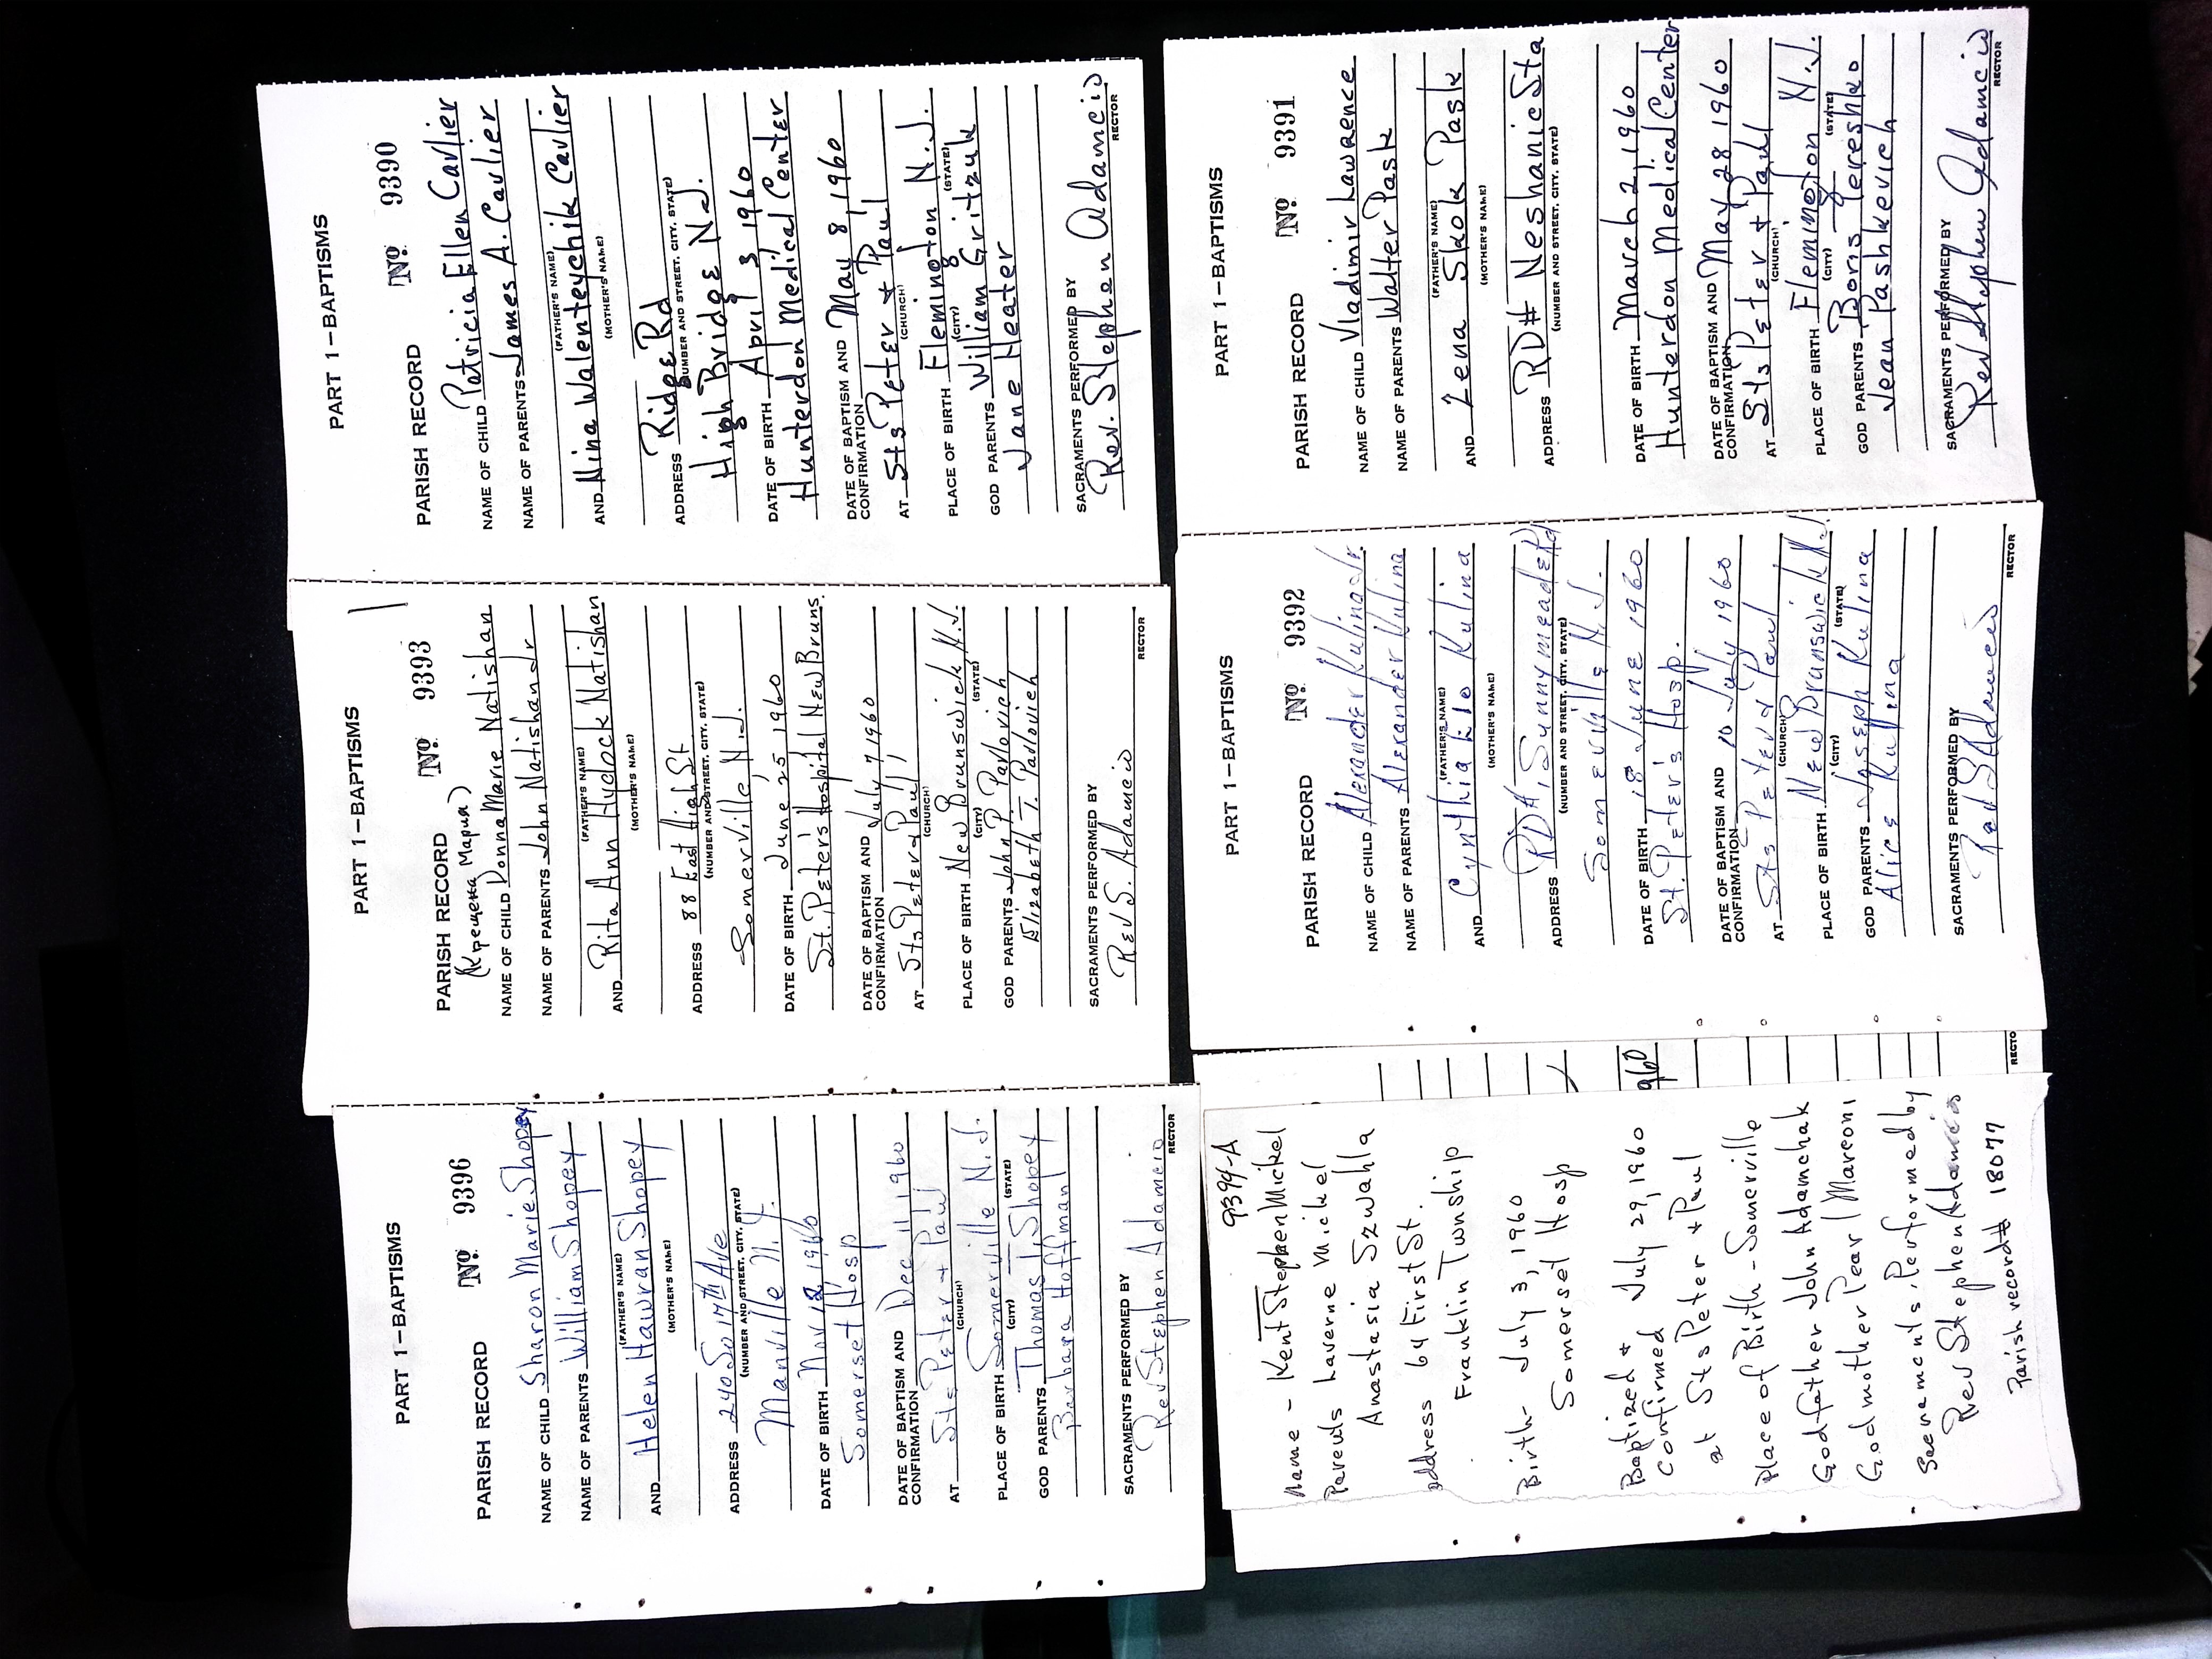 PART 1—BAPTISMS
PARISH RECORD Nº 9396
NAME OF CHILD Sharon Marie Shopey
NAME OF PARENTS William Shopey
(FATHER'S NAME)
AND Helen Hawran Shopey
(MOTHER'S NAME)
ADDRESS 240 So 17th Ave
(NUMBER AND STREET, CITY, STATE)
Manville N.J.
DATE OF BIRTH Nov 12, 1960
Somerset Hosp
DATE OF BAPTISM AND
CONFIRMATION Dec 11, 1960
AT Sts Peter + Paul
(CHURCH)
PLACE OF BIRTH Somerville N.J.
(CITY) (STATE)
GOD PARENTS Thomas T. Shopey
Barbara Hoffman
SACRAMENTS PERFORMED BY
Rev Stephen Adamcio
RECTOR
PART 1—BAPTISMS
PARISH RECORD Nº 9393
(Крещена Мария)
NAME OF CHILD Donna Marie Natishan
NAME OF PARENTS John Natishan Jr
(FATHER'S NAME)
AND Rita Ann Hydock Natishan
(MOTHER'S NAME)
ADDRESS 88 East High St.
(NUMBER AND STREET, CITY, STATE)
Somerville, N.J.
DATE OF BIRTH June 25, 1960
St. Peter's Hospital New Bruns.
DATE OF BAPTISM AND
CONFIRMATION July 7, 1960
AT Sts Peter + Paul
(CHURCH)
PLACE OF BIRTH New Brunswick, N.J.
(CITY) (STATE)
GOD PARENTS John P. Pavlovich
Elizabeth T. Pavlovich
SACRAMENTS PERFORMED BY
Rev S. Adamcio
RECTOR
PART 1—BAPTISMS
PARISH RECORD Nº 9390
NAME OF CHILD Patricia Ellen Cavlier
NAME OF PARENTS James A. Cavlier
(FATHER'S NAME)
AND Nina Walenteychik Cavlier
(MOTHER'S NAME)
ADDRESS Ridge Rd
NUMBER AND STREET, CITY, STATE)
High Bridge N.J.
DATE OF BIRTH April 3, 1960
Hunterdon Medical Center
DATE OF BAPTISM AND
CONFIRMATION May 8, 1960
AT Sts Peter + Paul
(CHURCH)
PLACE OF BIRTH Flemington N.J.
(CITY) (STATE)
GOD PARENTS William Gritzuk
Jane Heater
SACRAMENTS PERFORMED BY
Rev. Stephen Adamcio
RECTOR
9394-A
Name - Kent Stephen Mickel
Parents Laverne Mickel
Anastasia Szwahla
address 64 First St.
Franklin Twnship
Birth- July 3, 1960
Somerset Hosp
Baptized +
Confirmed July 29, 1960
at Sts Peter + Paul
Place of Birth - Somerville
Godfather John Adamchak
Godmother Pearl Marconi
Sacraments Performed by
Rev Stephen Adamcio
Parish record # 18077
960
RECTO
PART 1—BAPTISMS
PARISH RECORD Nº 9392
NAME OF CHILD Alexander Kulina Jr.
NAME OF PARENTS Alexander Kulina
(FATHER'S NAME)
AND Cynthia Klo Kulina
(MOTHER'S NAME)
ADDRESS RD#1 Sunnymeade Rd
(NUMBER AND STREET, CITY, STATE)
Somerville N.J.
DATE OF BIRTH 18 June 1960
St. Peter's Hosp.
DATE OF BAPTISM AND
CONFIRMATION 10 July 1960
AT Sts Peter + Paul
(CHURCH)
PLACE OF BIRTH New Brunswick N.J.
(CITY) (STATE)
GOD PARENTS Joseph Kulina
Alice Kulina
SACRAMENTS PERFORMED BY
Rev S Adamcio
RECTOR
PART 1—BAPTISMS
PARISH RECORD Nº 9391
NAME OF CHILD Vladimir Lawrence
NAME OF PARENTS Walter Pask
(FATHER'S NAME)
AND Zena Skok Pask
(MOTHER'S NAME)
ADDRESS RD# Neshanic Sta
(NUMBER AND STREET, CITY, STATE)
DATE OF BIRTH March 2, 1960
Hunterdon Medical Center
DATE OF BAPTISM AND
CONFIRMATION May 28, 1960
AT Sts Peter + Paul
(CHURCH)
PLACE OF BIRTH Flemington N.J.
(CITY) (STATE)
GOD PARENTS Boris Tereshko
Jean Pashkevich
SACRAMENTS PERFORMED BY
Rev Stephen Adamcio
RECTOR